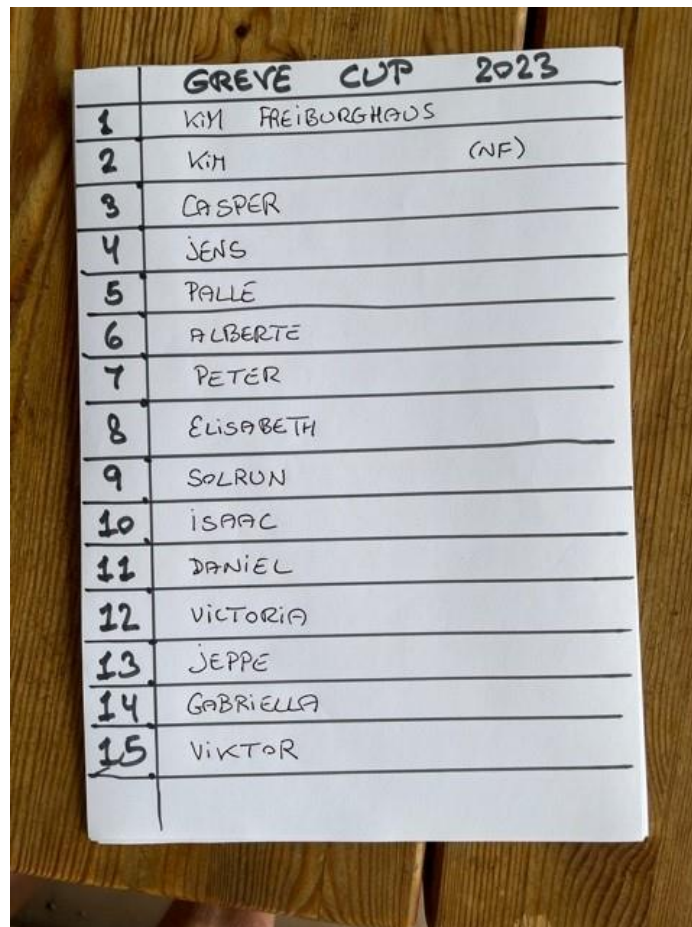 GREVE CUP 2023
1 KiM FREiBURGHAUS
2 KiM (NF)
3 CASPER
4 jENS
5 PALLE
6 ALBERTE
7 PETER
8 ELiSABETH
9 SOLRUN
10 iSAAC
11 DANiEL
12 ViCTORiA
13 jEPPE
14 GABRiELLA
15 ViKTOR